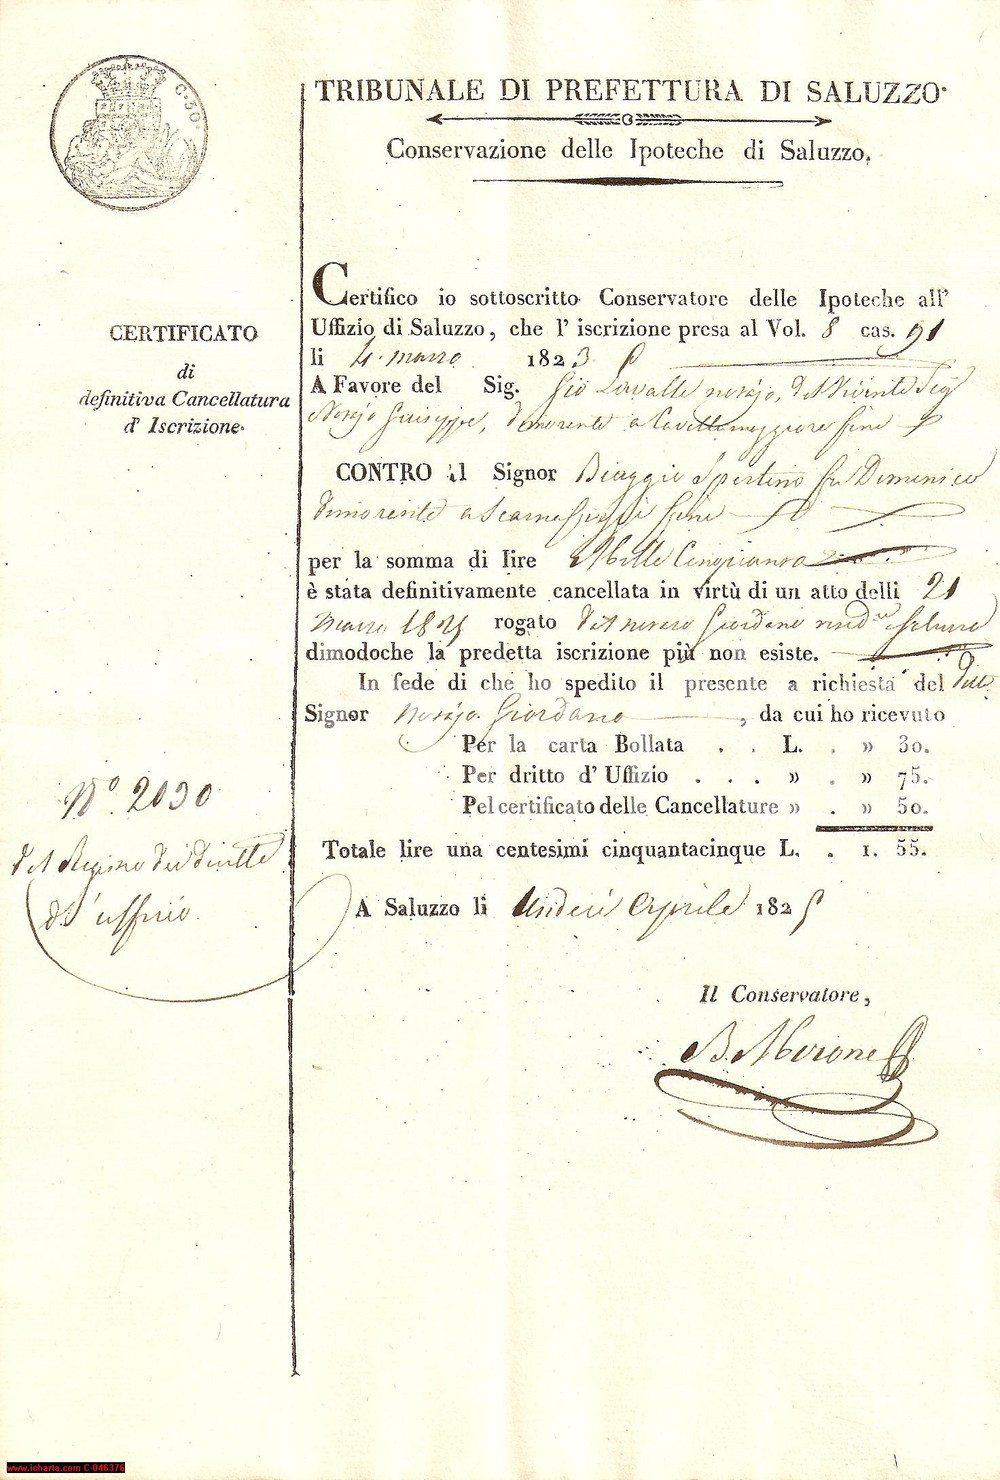 C. 30.
TRIBUNALE DI PREFETTURA DI SALUZZO.
Conservazione delle Ipoteche di Saluzzo.
CERTIFICATO
di
definitiva Cancellatura
d' Iscrizione.
Certifico io sottoscritto Conservatore delle Ipoteche all'
Uffizio di Saluzzo, che l' iscrizione presa al Vol. 8 cas. 91
li 4. marzo 1823
A Favore del Sig. Gio Lavalle
Giuseppe, dimorente a Cavallermaggiore
CONTRO il Signor Biaggio Spertino fu Domenico
dimorente a Scarnafiggi
per la somma di lire Mille Cinquanta
è stata definitivamente cancellata in virtù di un atto delli 21
marzo 1825 rogato Giordano
dimodoche la predetta iscrizione più non esiste.
In fede di che ho spedito il presente a richiesta del
Signor Giordano, da cui ho ricevuto
Per la carta Bollata . . L. . » 30.
Per dritto d' Uffizio . . . » . » 75.
Pel certificato delle Cancellature » . » 50.
Totale lire una centesimi cinquantacinque L. . 1. 55.
N.° 2030
del Regimo dei diritti
d'uffizio.
A Saluzzo li Undeci Aprile 1825
Il Conservatore,
B. Merone
www.icharta.com C-046376